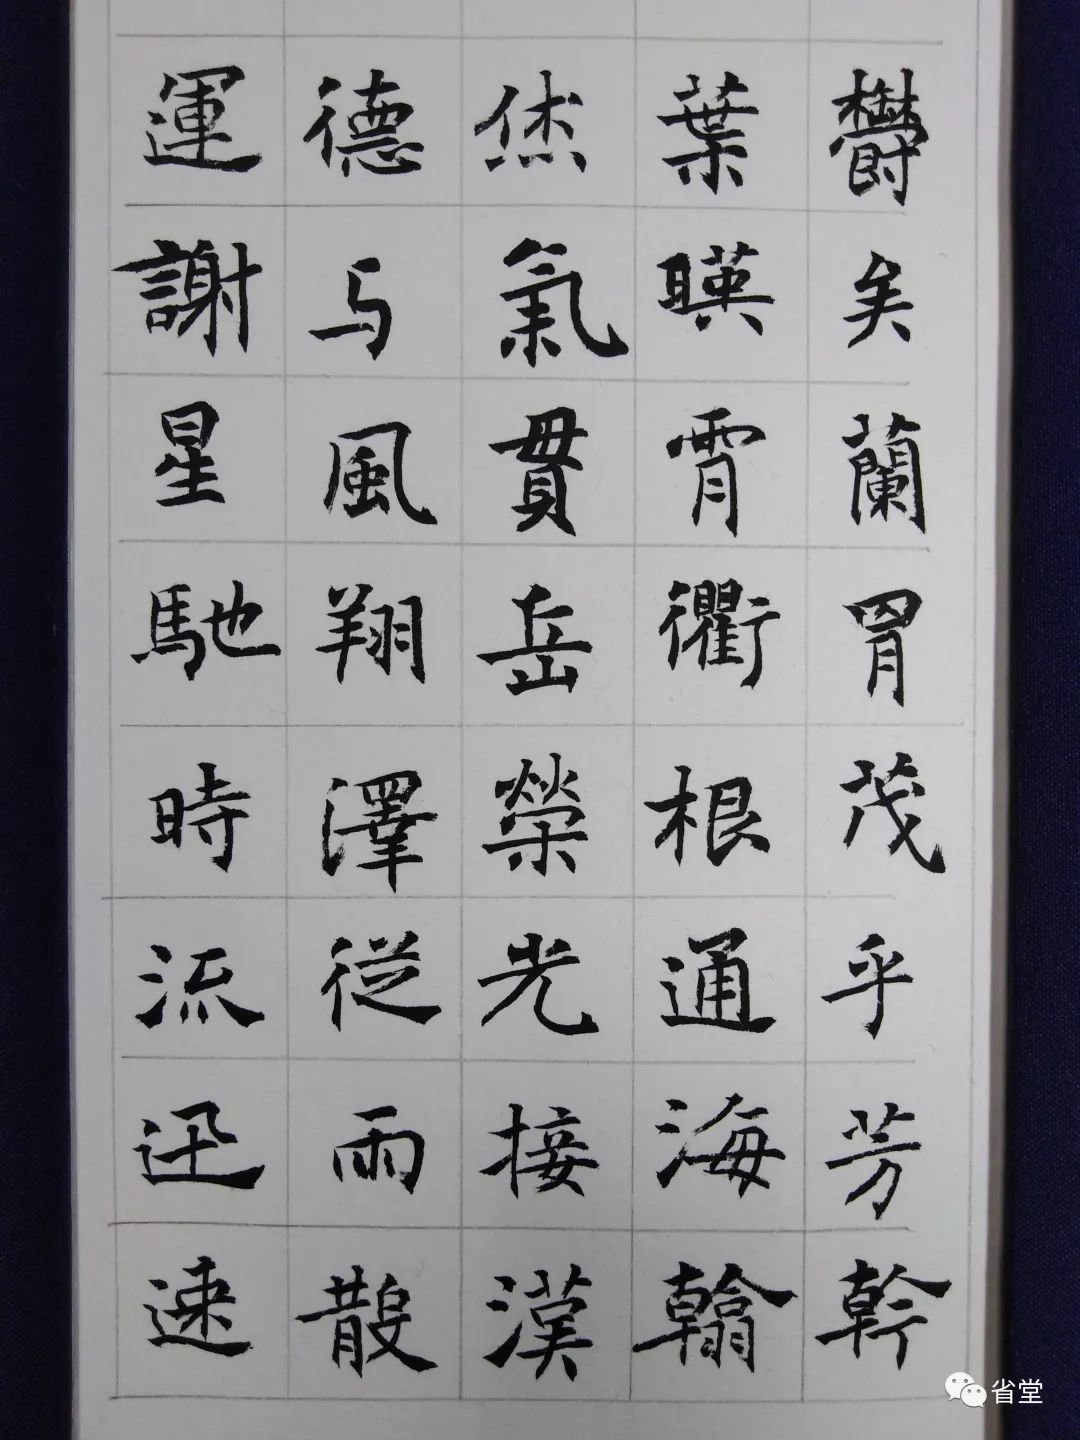 欝矣蘭胄茂乎芳幹
葉暎霄衢根通海翰
烋氣貫岳榮光接漢
德与風翔澤從雨散
運謝星馳時流迅速
省堂